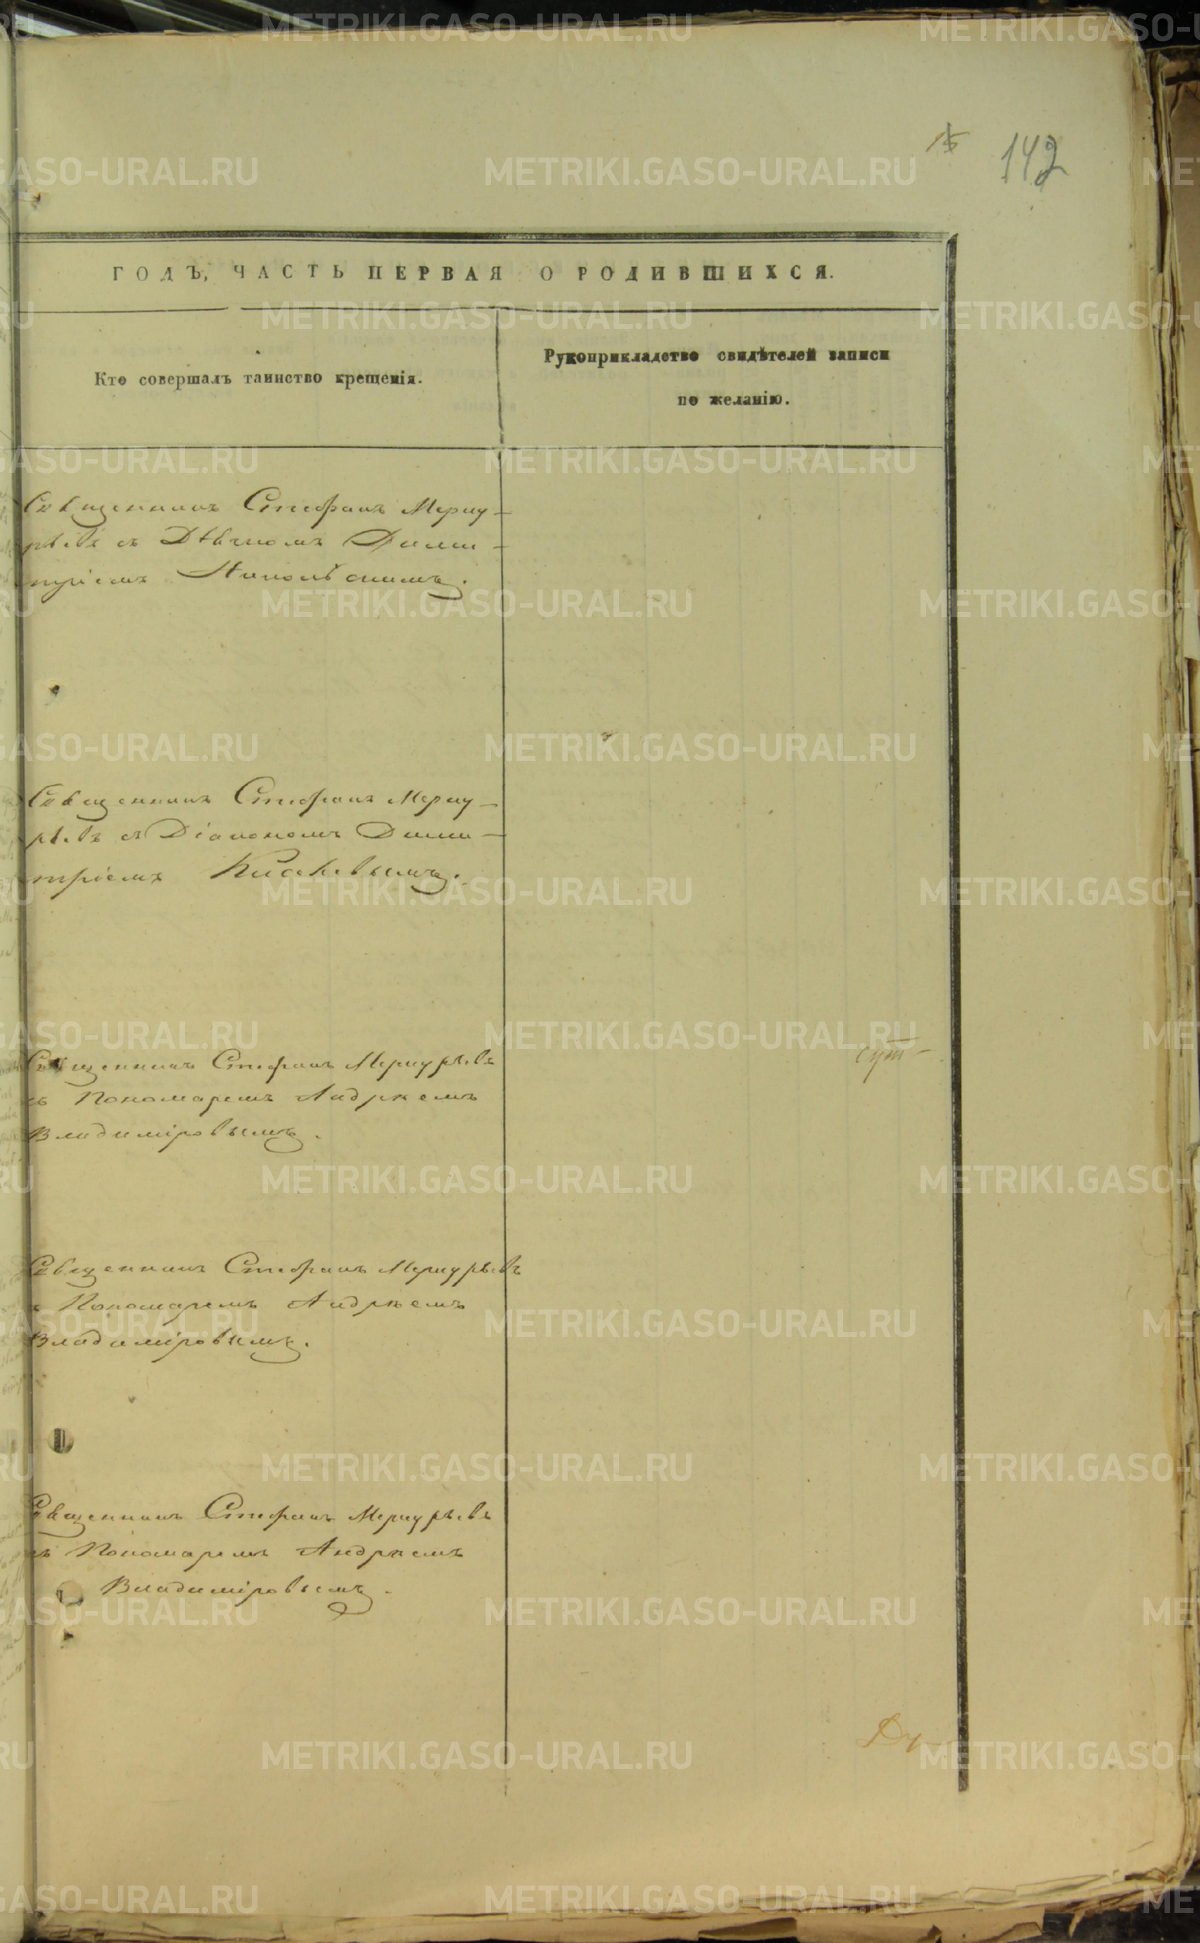 142
ГОДЪ, ЧАСТЬ ПЕРВАЯ О РОДИВШИХСЯ.
Кто совершалъ таинство крещенія.
Рукоприкладство свидѣтелей записи
по желанію.
Священникъ Стефанъ Мерку-
рьевъ съ Дьячкомъ Дими-
тріемъ
Священникъ Стефанъ Мерку-
рьевъ съ Діакономъ Дими-
тріемъ
Священникъ Стефанъ Меркурьевъ
съ Пономаремъ Андреемъ
Владиміровымъ.
Священникъ Стефанъ Меркурьевъ
съ Пономаремъ Андреемъ
Владиміровымъ.
Священникъ Стефанъ Меркурьевъ
съ Пономаремъ Андреемъ
Владиміровымъ.
METRIKI.GASO-URAL.RU